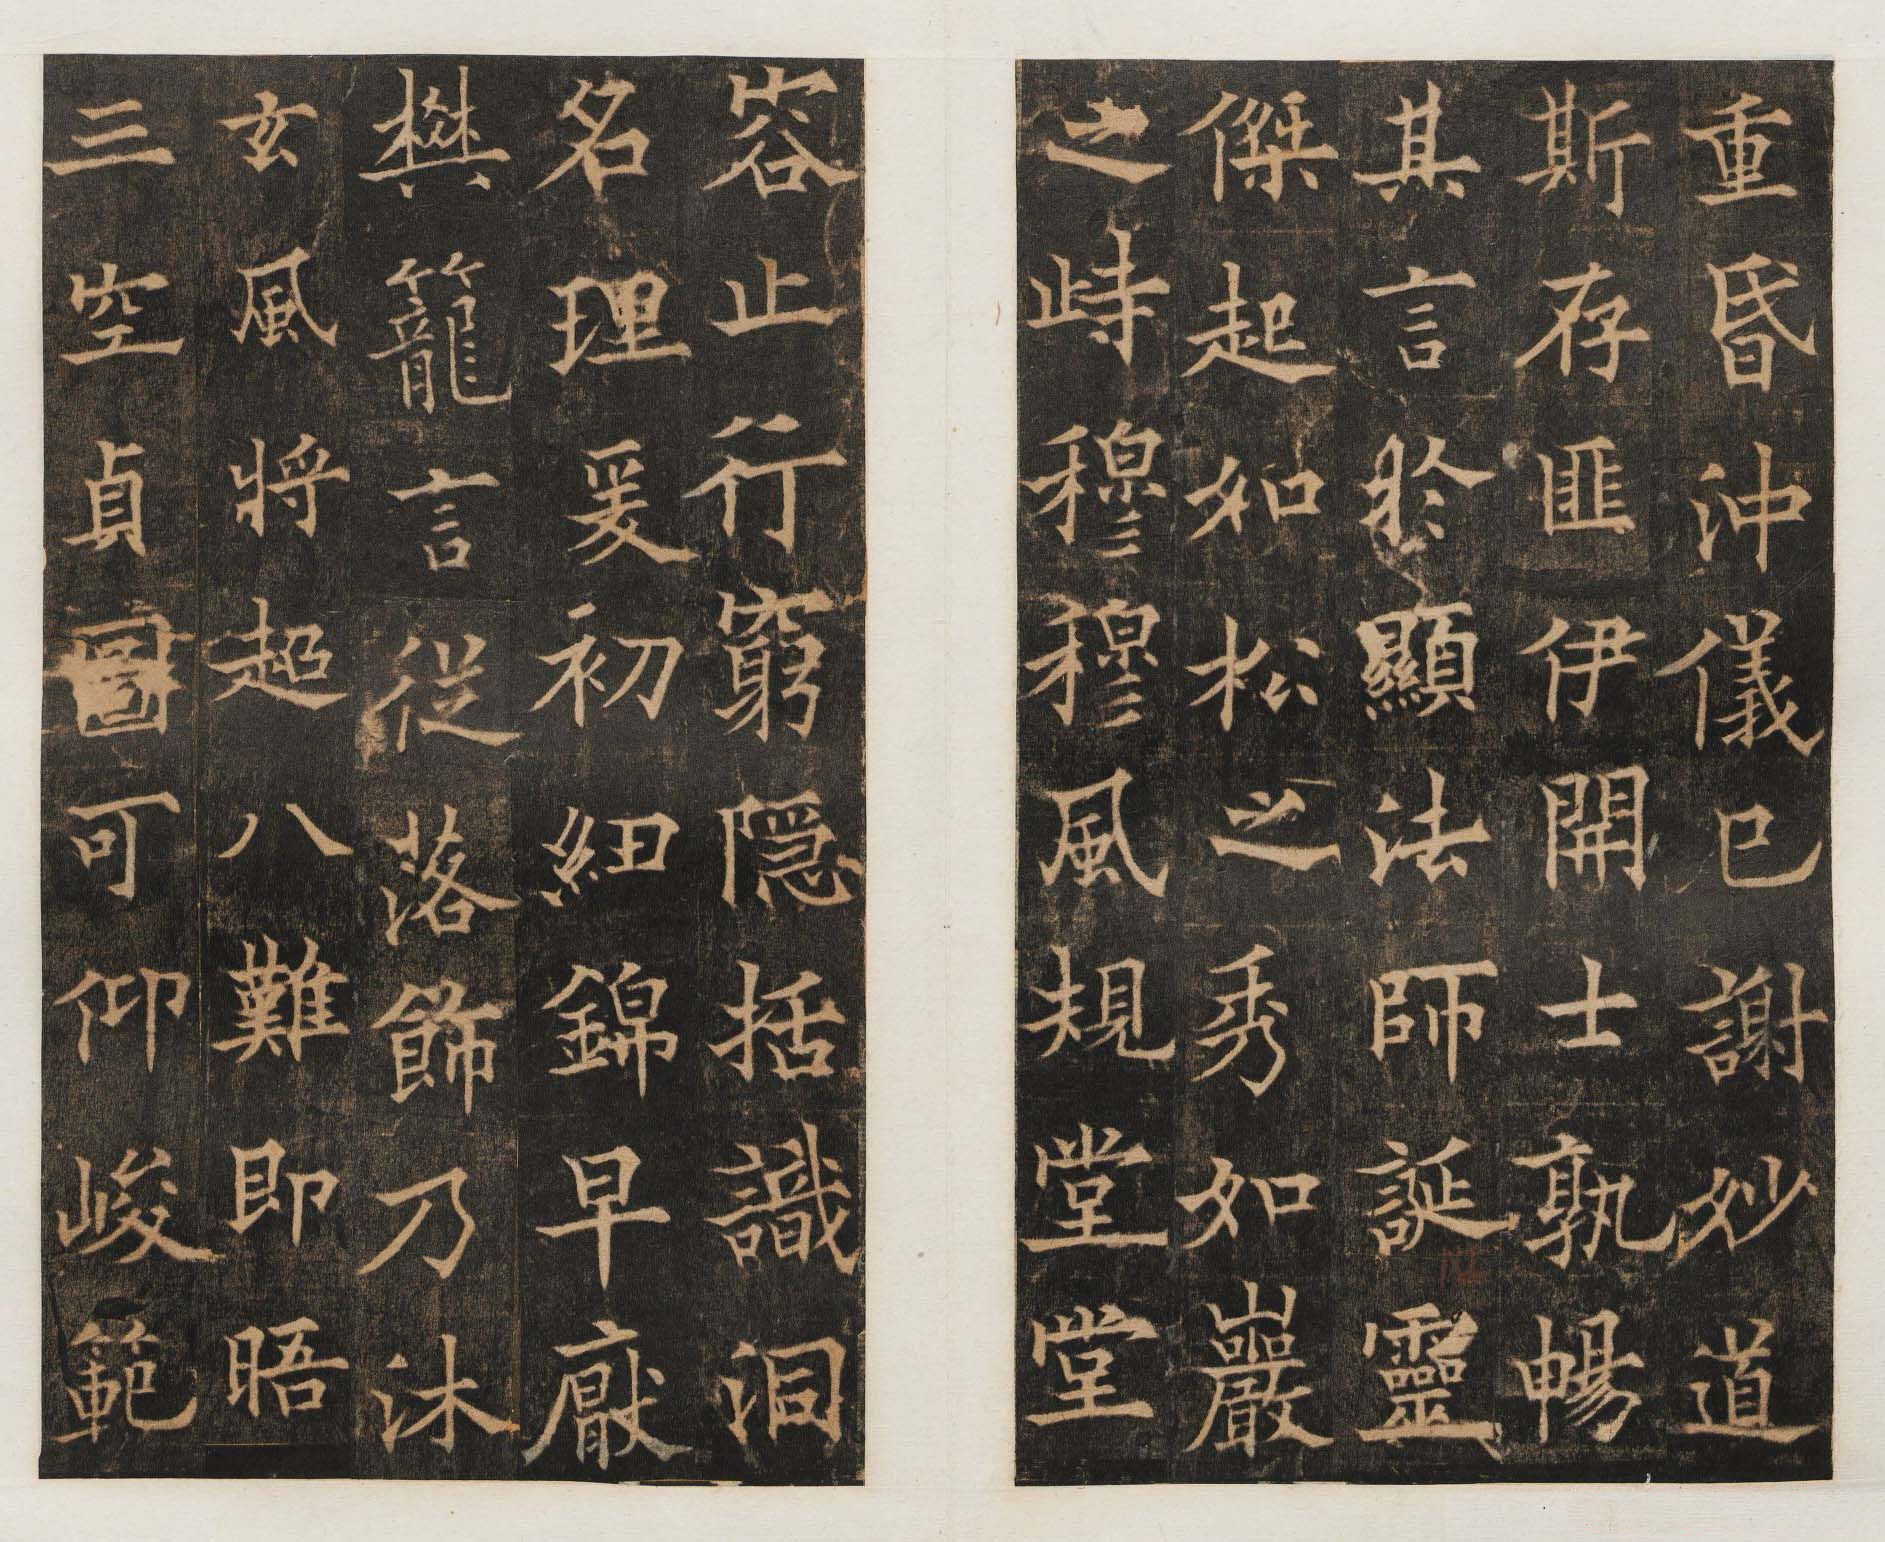 重昏沖儀已謝妙道
斯存匪伊開士孰暢
其言於顯法師誕靈
傑起如松之秀如巖
之峙穆穆風規堂堂
容止行窮隱括識洞
名理爰初紐錦早厭
樊籠言從落飾乃沐
玄風將超八難即晤
三空貞圖可仰峻範